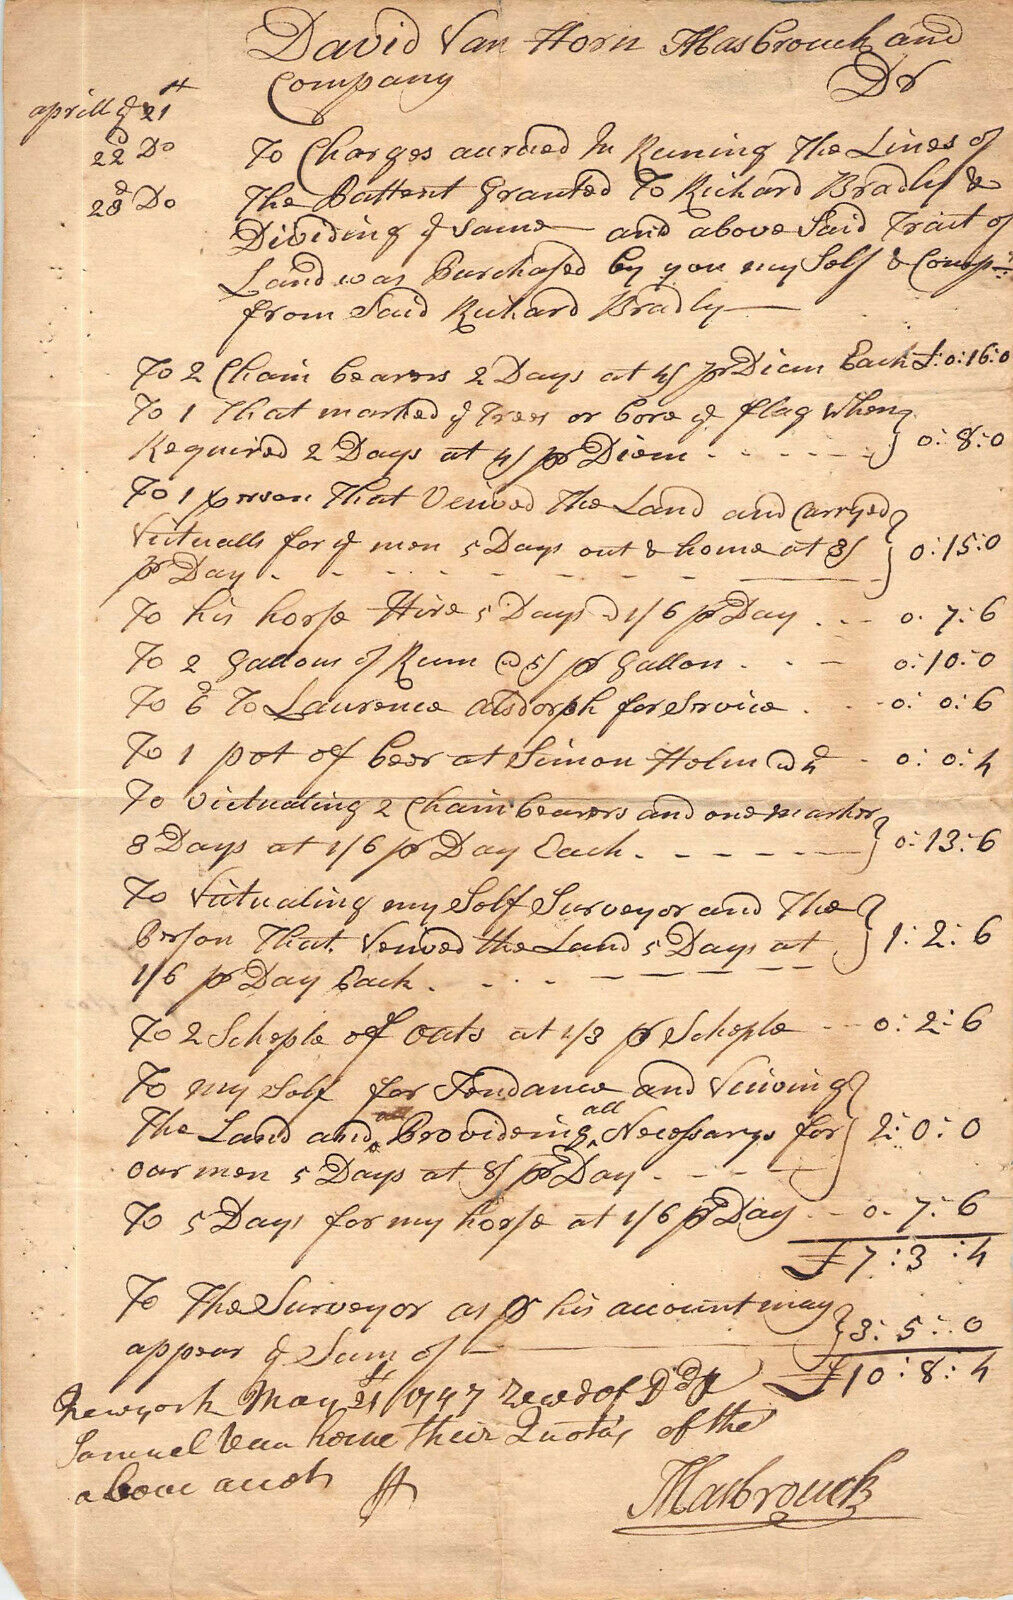 David Van Horn Hasbrouck and
Company Dr
aprill ye 21st
22d Do To Charges acrued In Runing The Lines of
23d Do The Pattent Granted To Richard Bradly &
Dividing ye same and above Said Trait of
Land was Purchased by you my Self & Comp:
from Said Richard Bradly
To 2 Chain bearers 2 Days at 4/ pr Diem Each £:0:16:0
To 1 That marked ye Trees or bore ye flag when
Required 2 Days at 4/ pr Diem 0:8:0
To 1 person That Veiwed The Land and Carryed
Victualls for ye men 5 Days out & home at 3/ 0:15:0
pr Day
To his horse Hire 5 Days @ 1/6 pr Day 0:7:6
To 2 Gallons of Rum @ 5/ pr Gallon 0:10:0
To 6d To Laurence alsdorph for Service 0:0:6
To 1 pot of beer at Simon Holm @ 4d 0:0:4
To Victualing 2 Chain bearers and one marker
3 Days at 1/6 pr Day Each 0:13:6
To Victualing my Self Surveyor and The
Person That Veiwed the Land 5 Days at 1:2:6
1/6 pr Day Each
To 2 Scheple of oats at 1/3 pr Scheple 0:2:6
To my Self for Tendance and Veiwing
The Land and all Provideing all Necessarys for 2:0:0
our men 5 Days at 8/ pr Day
To 5 Days for my horse at 1/6 pr Day 0:7:6
£7:3:4
To The Surveyor as pr his account may
appear ye Sum of 3:5:0
£10:8:4
Newyork May 21st 1747 Recd of Dd &
Samuel Van horne their Quotas of the
above acct
AHasbrouck